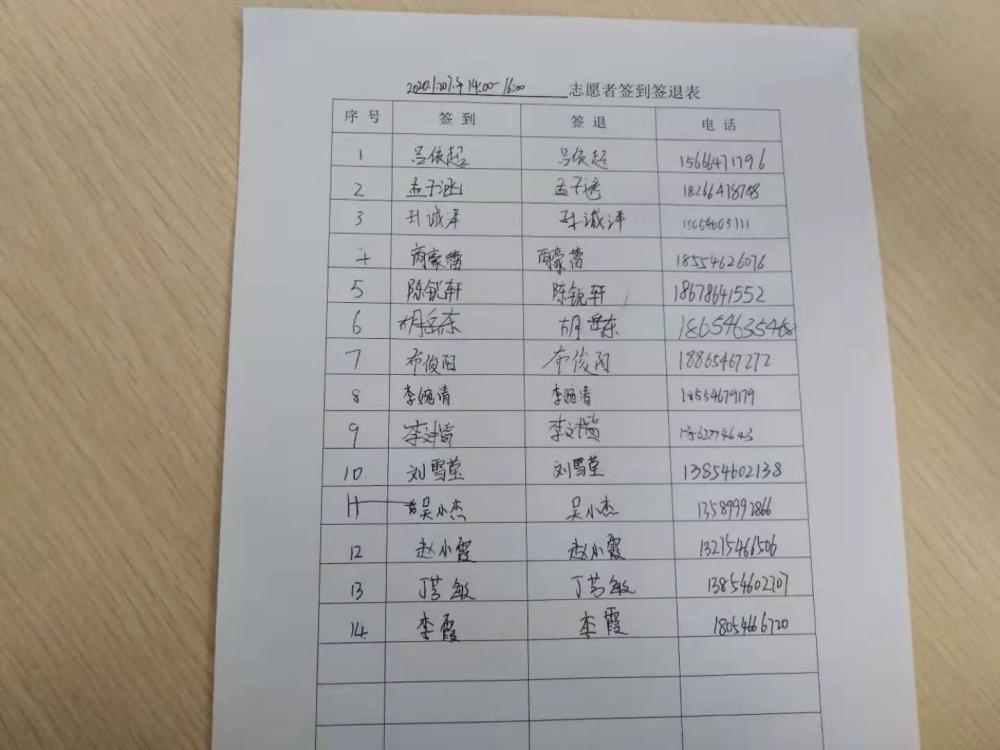 2020.1.20下午14:00-16:00 志愿者签到签退表
序号 签到 签退 电话
1 吕依起 吕依起 15666471796
2 孟子涵 孟子涵 18266478748
3 孙诚泽 孙诚泽
4 18554626076
5 陈锐轩 陈锐轩 18678641552
6 胡岳东 胡岳东 18654635468
7 布俊阳 布俊阳 18865467272
8 李婉清 李婉清 18554679179
9
10. 刘雪莹 刘雪莹 13854602138
11 吴小杰 吴小杰 13589992866
12 赵小霞 赵小霞 13215466506
13 丁芳敏 丁芳敏 13854602707
14. 李霞 李霞 18054666720